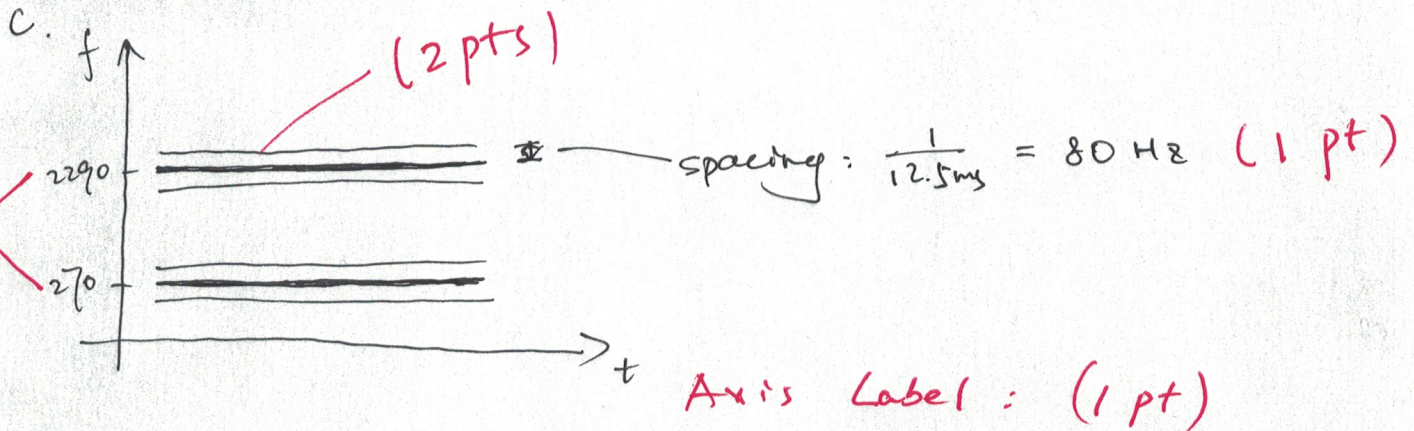 c.
f
(2 pts)
2290
spacing: 1/12.5ms = 80 Hz (1 pt)
270
t
Axis Label: (1 pt)